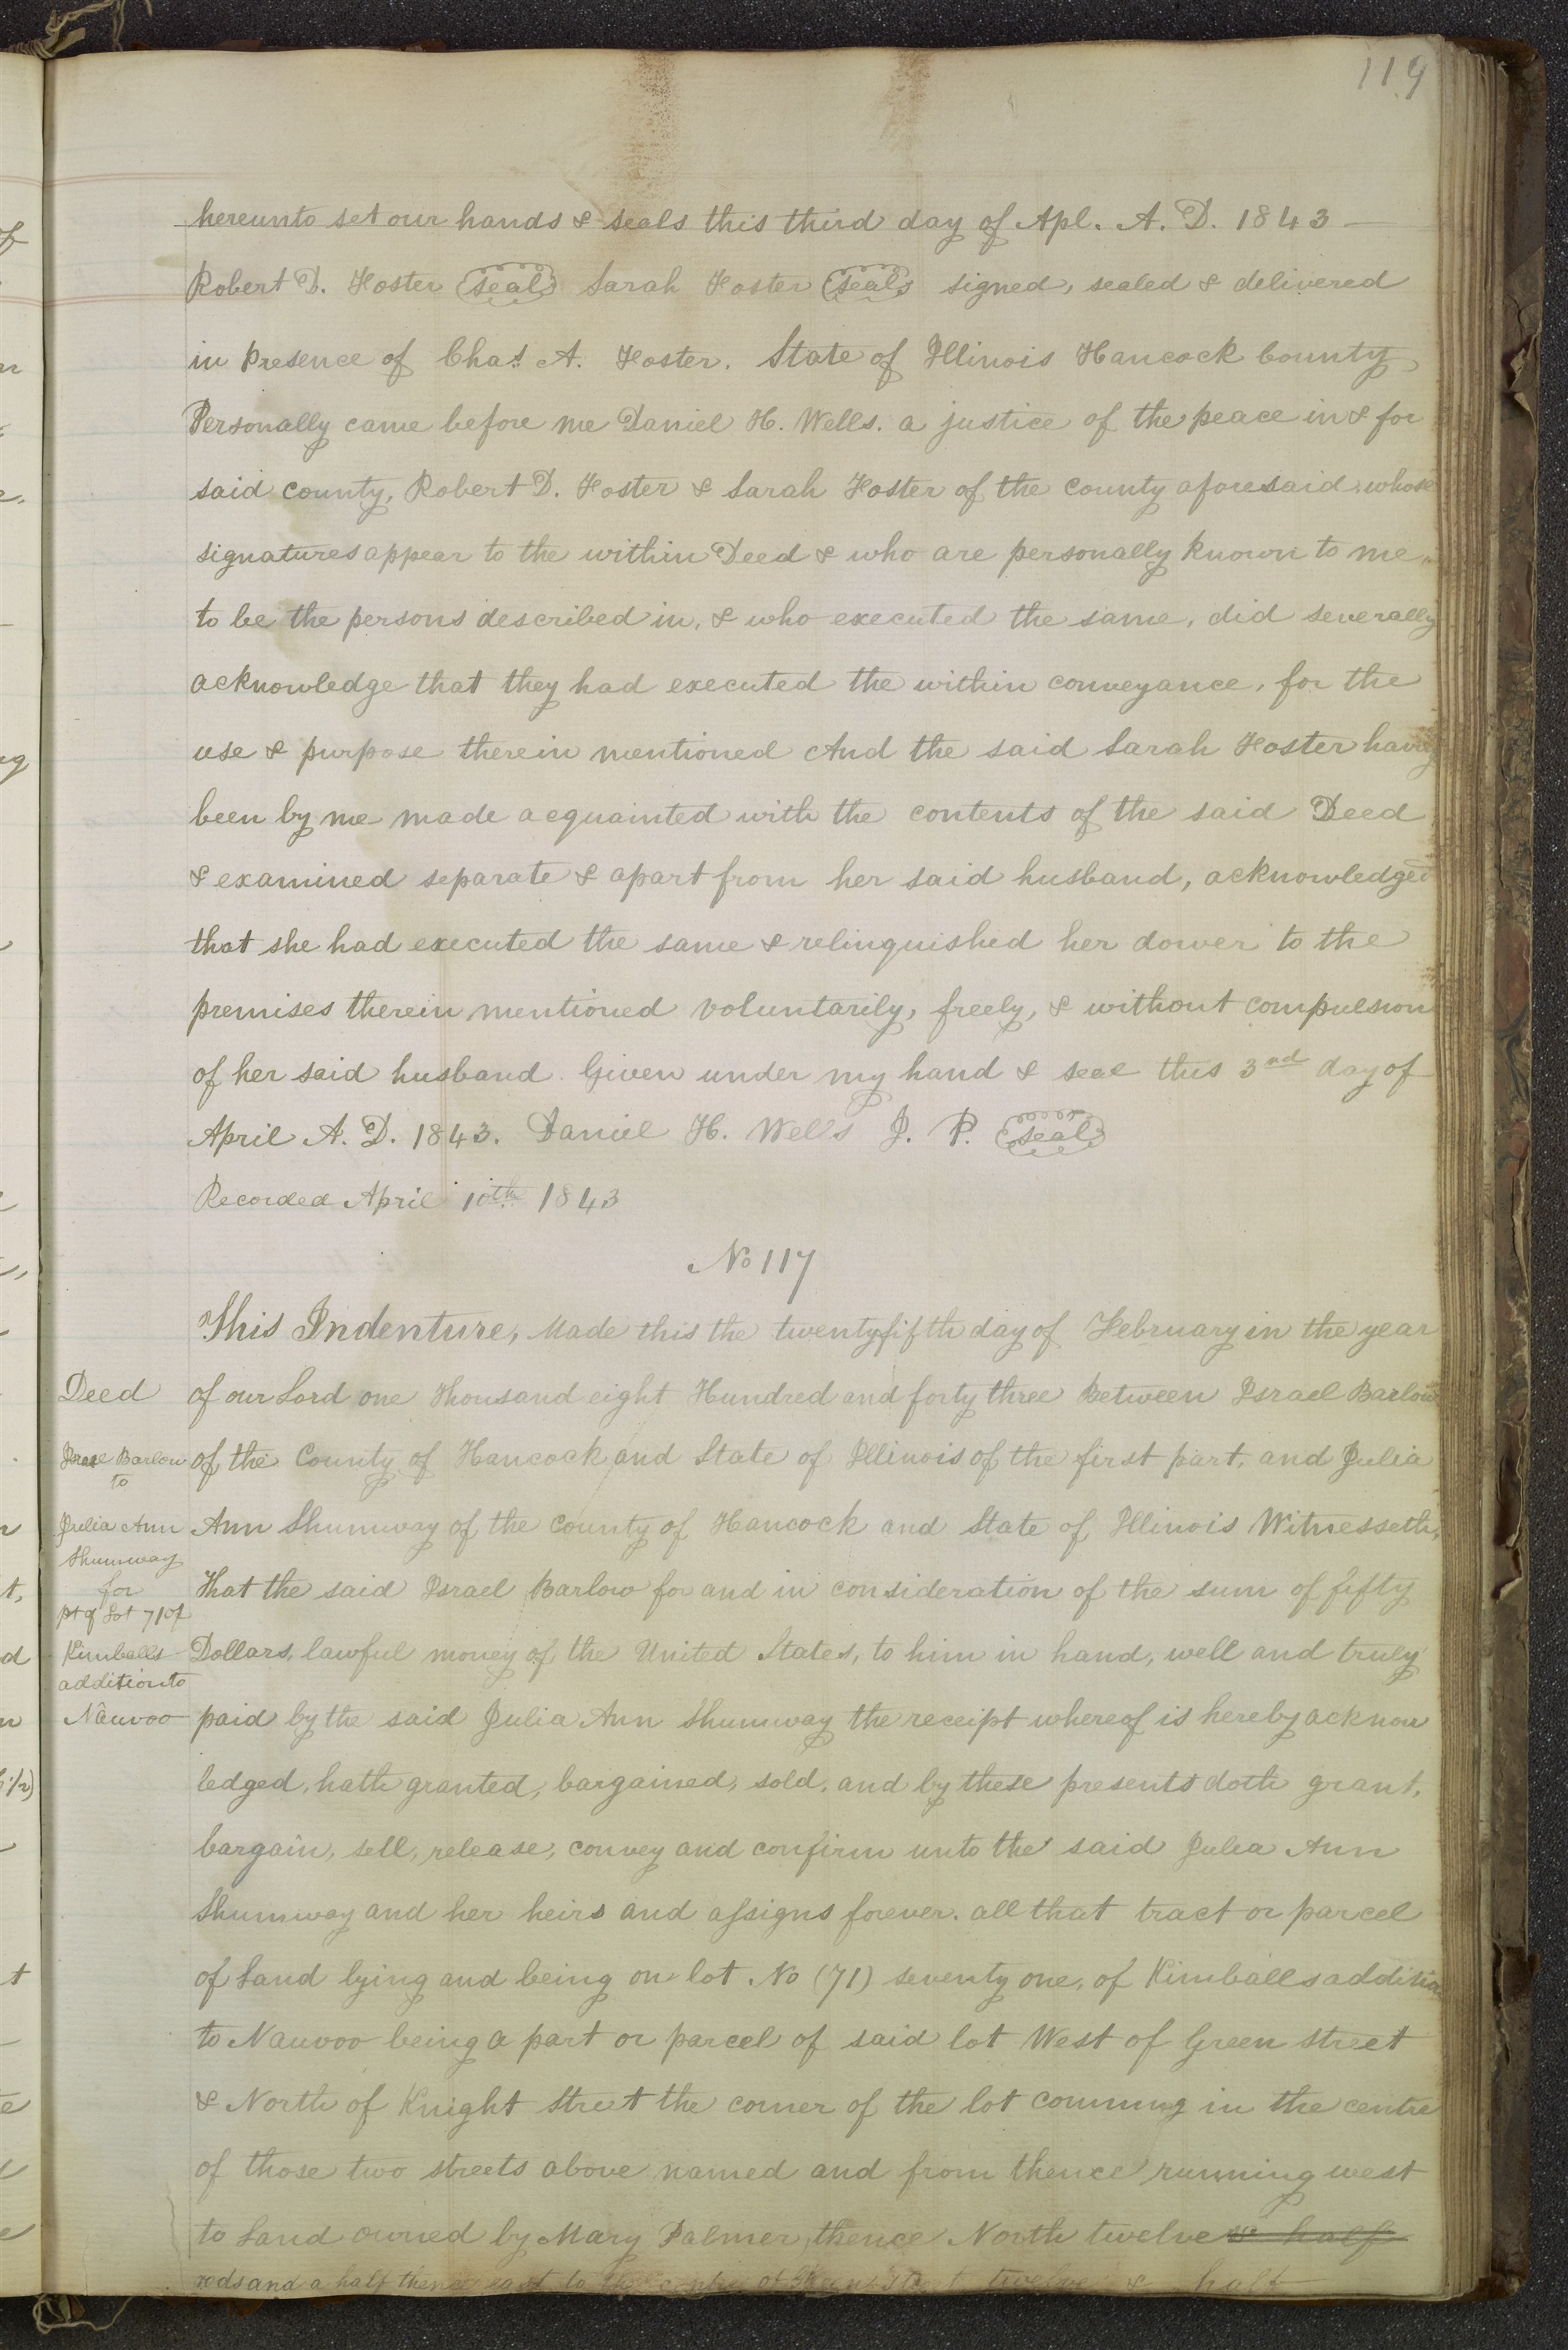 119
hereunto set our hands & seals this third day of Apl. A. D. 1843
Robert D. Foster (seal) Sarah Foster (seal) signed, sealed & delivered
in presence of Chas. A. Foster. State of Illinois Hancock County
Personally came before me Daniel H. Wells. a justice of the peace in & for
said county, Robert D. Foster & Sarah Foster of the county aforesaid, whose
signatures appear to the within Deed & who are personally known to me
to be the persons described in, & who executed the same, did severally
acknowledge that they had executed the within conveyance, for the
use & purpose therein mentioned And the said Sarah Foster having
been by me made acquainted with the contents of the said Deed
& examined separate & apart from her said husband, acknowledged
that she had executed the same & relinquished her dower to the
premises therein mentioned voluntarily, freely, & without compulsion
of her said husband. Given under my hand & seal this 3nd day of
April A. D. 1843. Daniel H. Wells J. P. (seal)
Recorded April 10th 1843
No 117
This Indenture, Made this the twentyfifth day of February in the year
Deed
of our Lord one Thousand eight Hundred and forty three Between Israel Barlow
Israel Barlow
to
of the County of Hancock and State of Illinois of the first part, and Julia
Julia Ann
Shumway
for
Ann Shumway of the County of Hancock and State of Illinois Witnesseth,
That the said Israel Barlow for and in consideration of the sum of fifty
pt of Lot 71 of
Kimballs
addition to
Nauvoo
Dollars, lawful money of the United States, to him in hand, well and truly
paid by the said Julia Ann Shumway the receipt whereof is hereby acknow
ledged, hath granted, bargained, sold, and by these presents doth grant,
bargain, sell, release, convey and confirm unto the said Julia Ann
Shumway and her heirs and assigns forever. all that tract or parcel
of Land lying and being on lot No (71) seventy one, of Kimballs addition
to Nauvoo being a part or parcel of said lot West of Green street
& North of Knight Street the corner of the lot comming in the centre
of those two streets above named and from thence running west
to Land owned by Mary Palmer, thence North twelve & half
rods and a half thence east to the centre of Green Street twelve & half